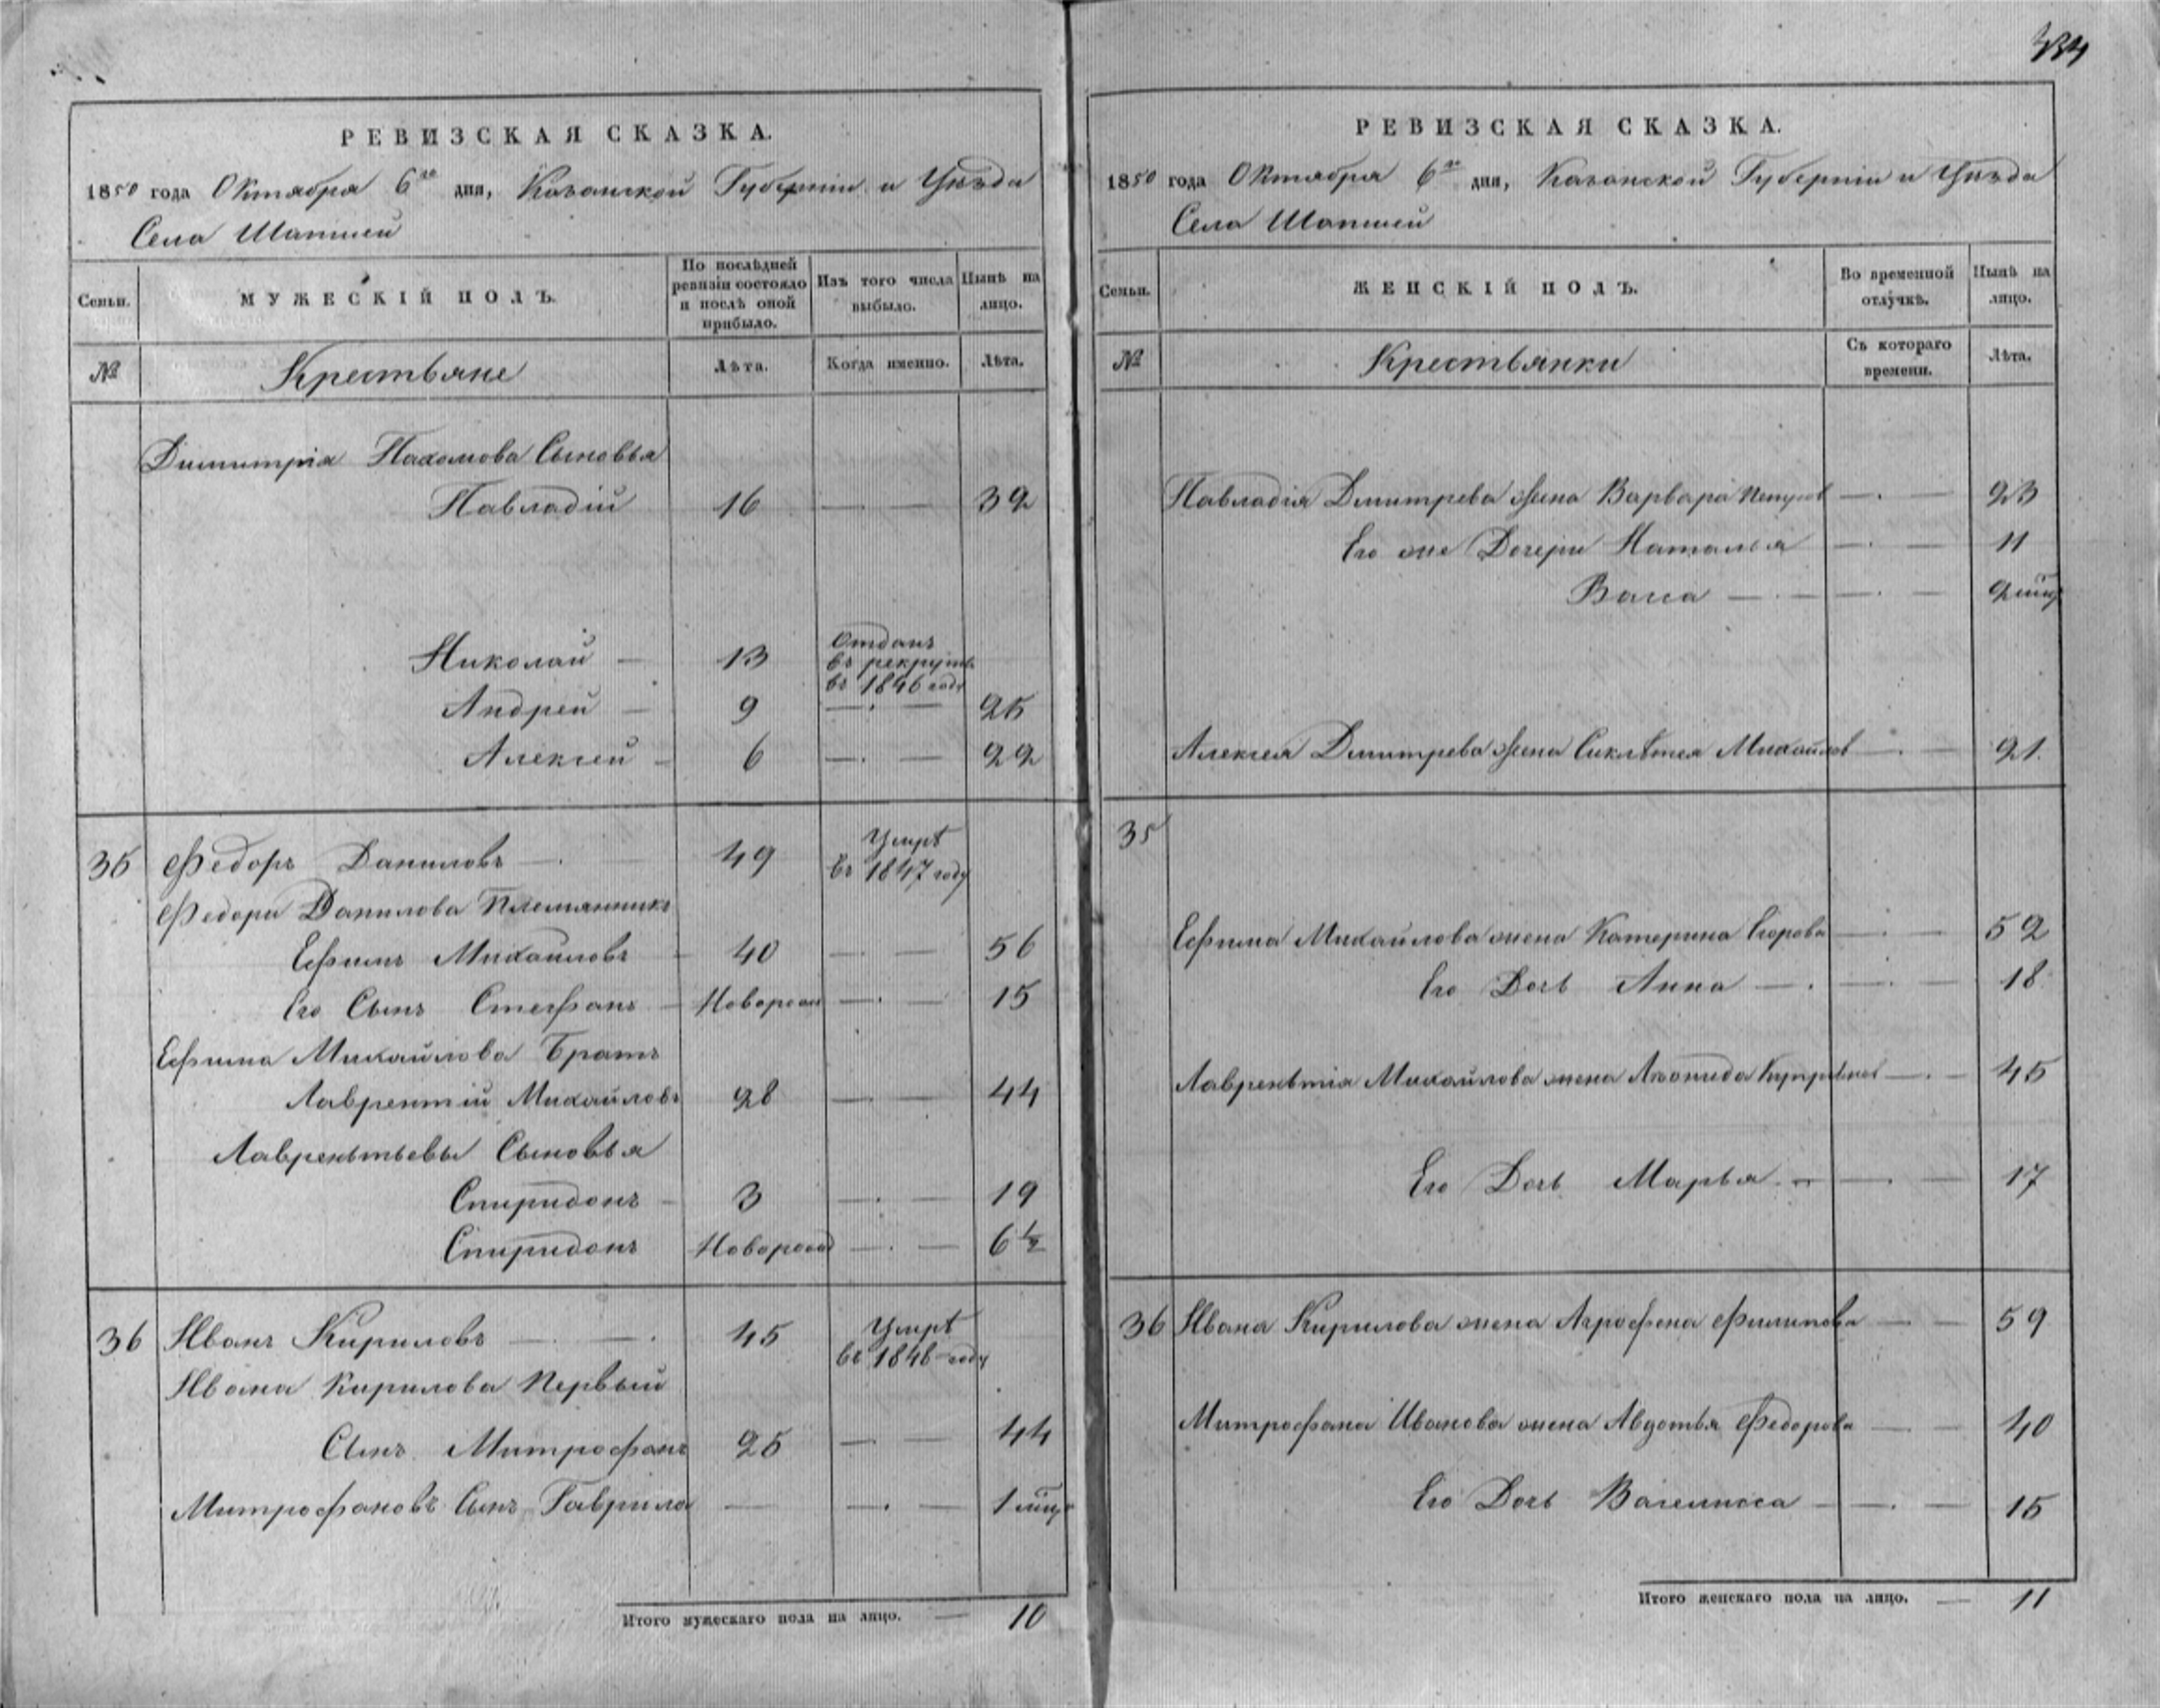 РЕВИЗСКАЯ СКАЗКА.
1850 года Октября 6го дня, Казанской Губерніи и Уѣзда
Села Шапшей
Семьи.
МУЖЕСКІЙ ПОЛЪ.
По послѣдней ревизіи состояло и послѣ оной прибыло.
Изъ того числа выбыло.
Нынѣ на лицо.
№
Крестьяне
Лѣта.
Когда именно.
Лѣта.
Димитрія Пахомова Сыновья
Павладій 16 — — 32
Николай — 13 Отданъ въ рекруты въ 1846 году
Андрей — 9 — — 25
Алексей — 6 — — 22
35 Федоръ Даниловъ — 49 Умре въ 1847 году
Федора Данилова Племянникъ
Ефимъ Михайловъ — 40 — — 56
Его Сынъ Стефанъ — Новорож — — 15
Ефима Михайлова Братъ
Лаврентій Михайловъ 28 — — 44
Лаврентьевы Сыновья
Спиридонъ — 3 — — 19
Спиридонъ Новорож — — 6 1/2
36 Иванъ Кириловъ — — 45 Умре въ 1846 году
Ивана Кирилова Первый
Сынъ Митрофанъ 25 — — 44
Митрофановъ Сынъ Гаврила — — — 1 мѣц
Итого мужескаго пола на лицо. — 10
РЕВИЗСКАЯ СКАЗКА.
1850 года Октября 6го дня, Казанской Губерніи и Уѣзда
Села Шапшей
Семьи.
ЖЕНСКІЙ ПОЛЪ.
Во временной отлучкѣ.
Нынѣ на лицо.
№
Крестьянки
Съ котораго времени.
Лѣта.
Павладія Дмитрева жена Варвара Петров — — 23
Его же Дочери Наталья — — 11
Васса — — — — 2 мѣц
Алексея Дмитрева жена Михайлов — — 21.
35
Ефима Михайлова жена Катерина Егорова — — 52
Его Дочь Анна — — — 18
Лаврентія Михайлова жена — — 45
Его Дочь Марья — — — 17
36 Ивана Кирилова жена Агрофена Филипова — — 59
Митрофана Иванова жена Авдотья Федорова — — 40
Его Дочь Василисса — — — 15
Итого женскаго пола на лицо. — 11